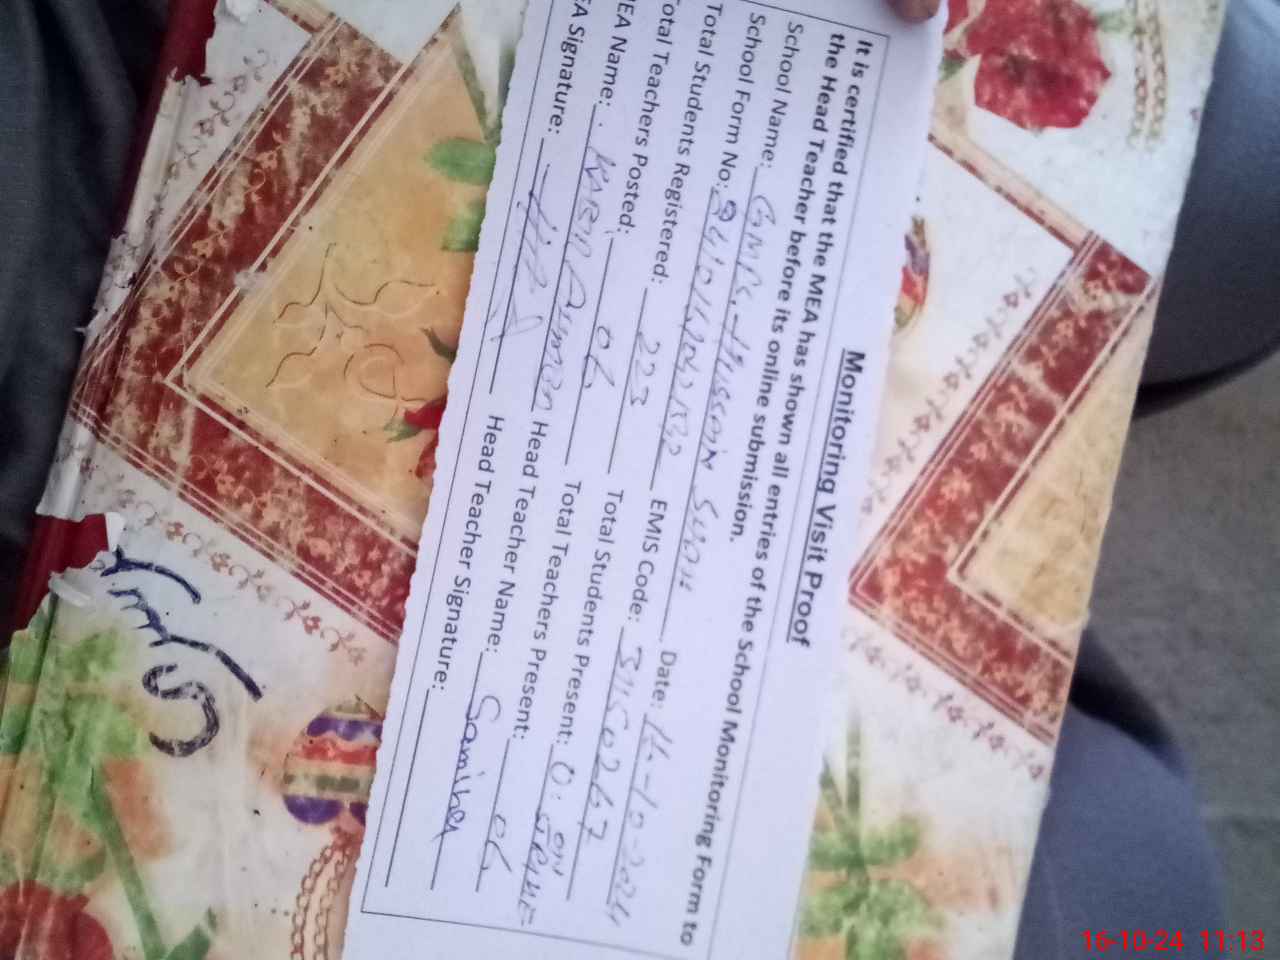 Monitoring Visit Proof
It is certified that the MEA has shown all entries of the School Monitoring Form to
the Head Teacher before its online submission.
School Name: GMPS. Hussain Suon Date: 16-10-2024
School Form No: EMIS Code: 31150267
Total Students Registered: 223 Total Students Present: 0.
Total Teachers Posted: 06 Total Teachers Present: 06
MEA Name: Head Teacher Name: Samina
EA Signature: Head Teacher Signature:
16-10-24 11:13